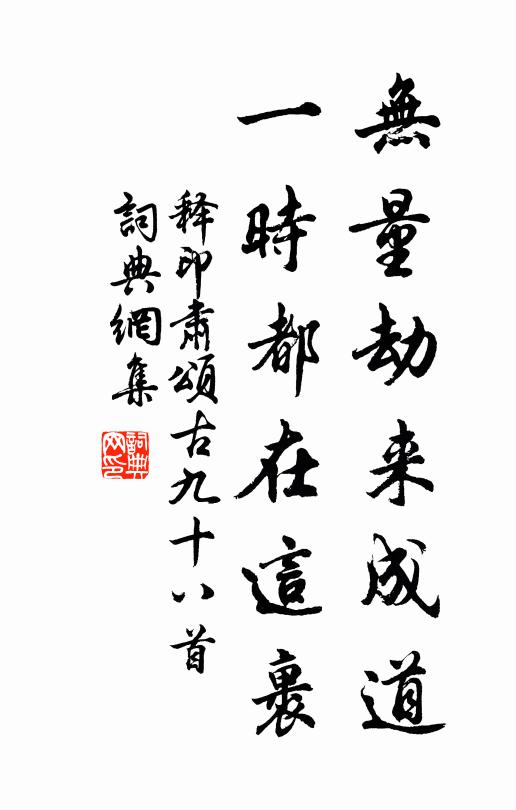 無量劫来成道
一時都在這裹
释印肃頌古九十八首
詞典網集
詞典网印